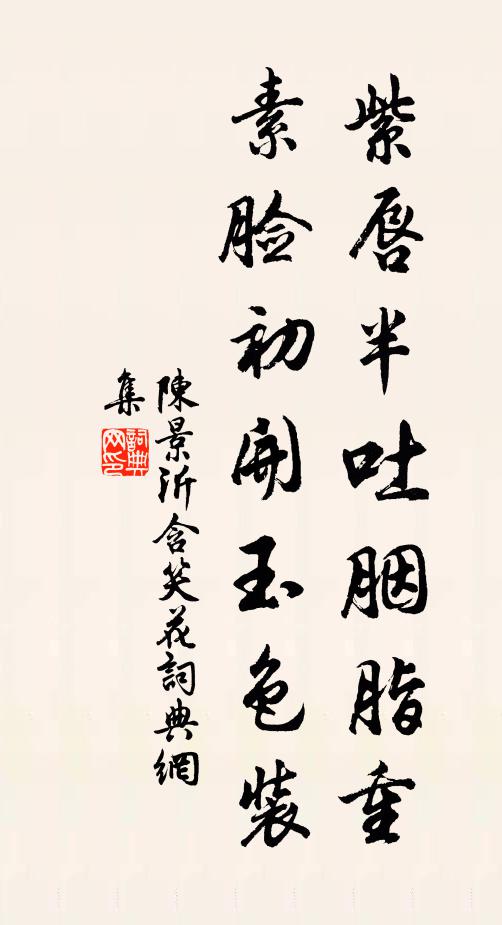 紫唇半吐胭脂重
素脸初開玉色裝
陳景沂含笑花詞典網
集
詞典网印